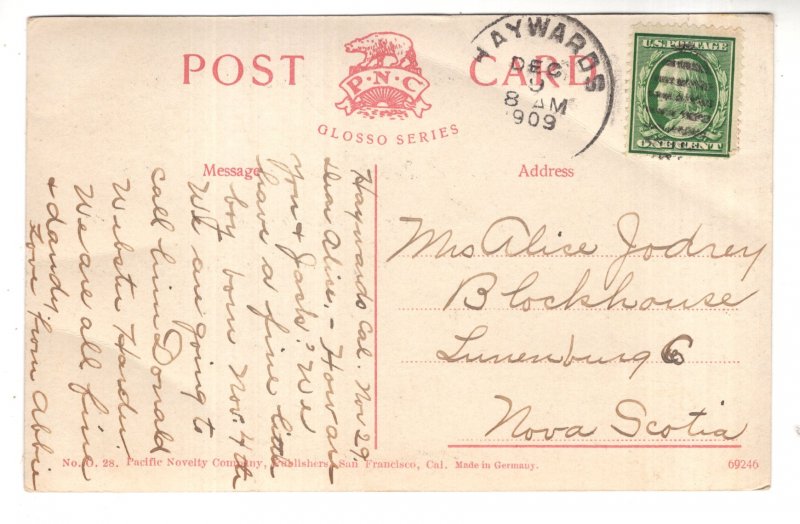 POST CARD
P·N·C
GLOSSO SERIES
HAYWARDS
DEC
9
8 AM
1909
U.S. POSTAGE
ONE CENT
Message
Address
Haywards Cal. Nov 29,
Dear Alice, - How are
you & Jack? We
have a fine little
boy born Nov. 4th
We are going to
call him Donald
Webster Harder
We are all fine
& dandy
Love from Abbie
Ms Alice Jodrey
Blockhouse
Lunenburg Co
Nova Scotia
No. O. 28. Pacific Novelty Company, Publishers, San Francisco, Cal. Made in Germany.
69246